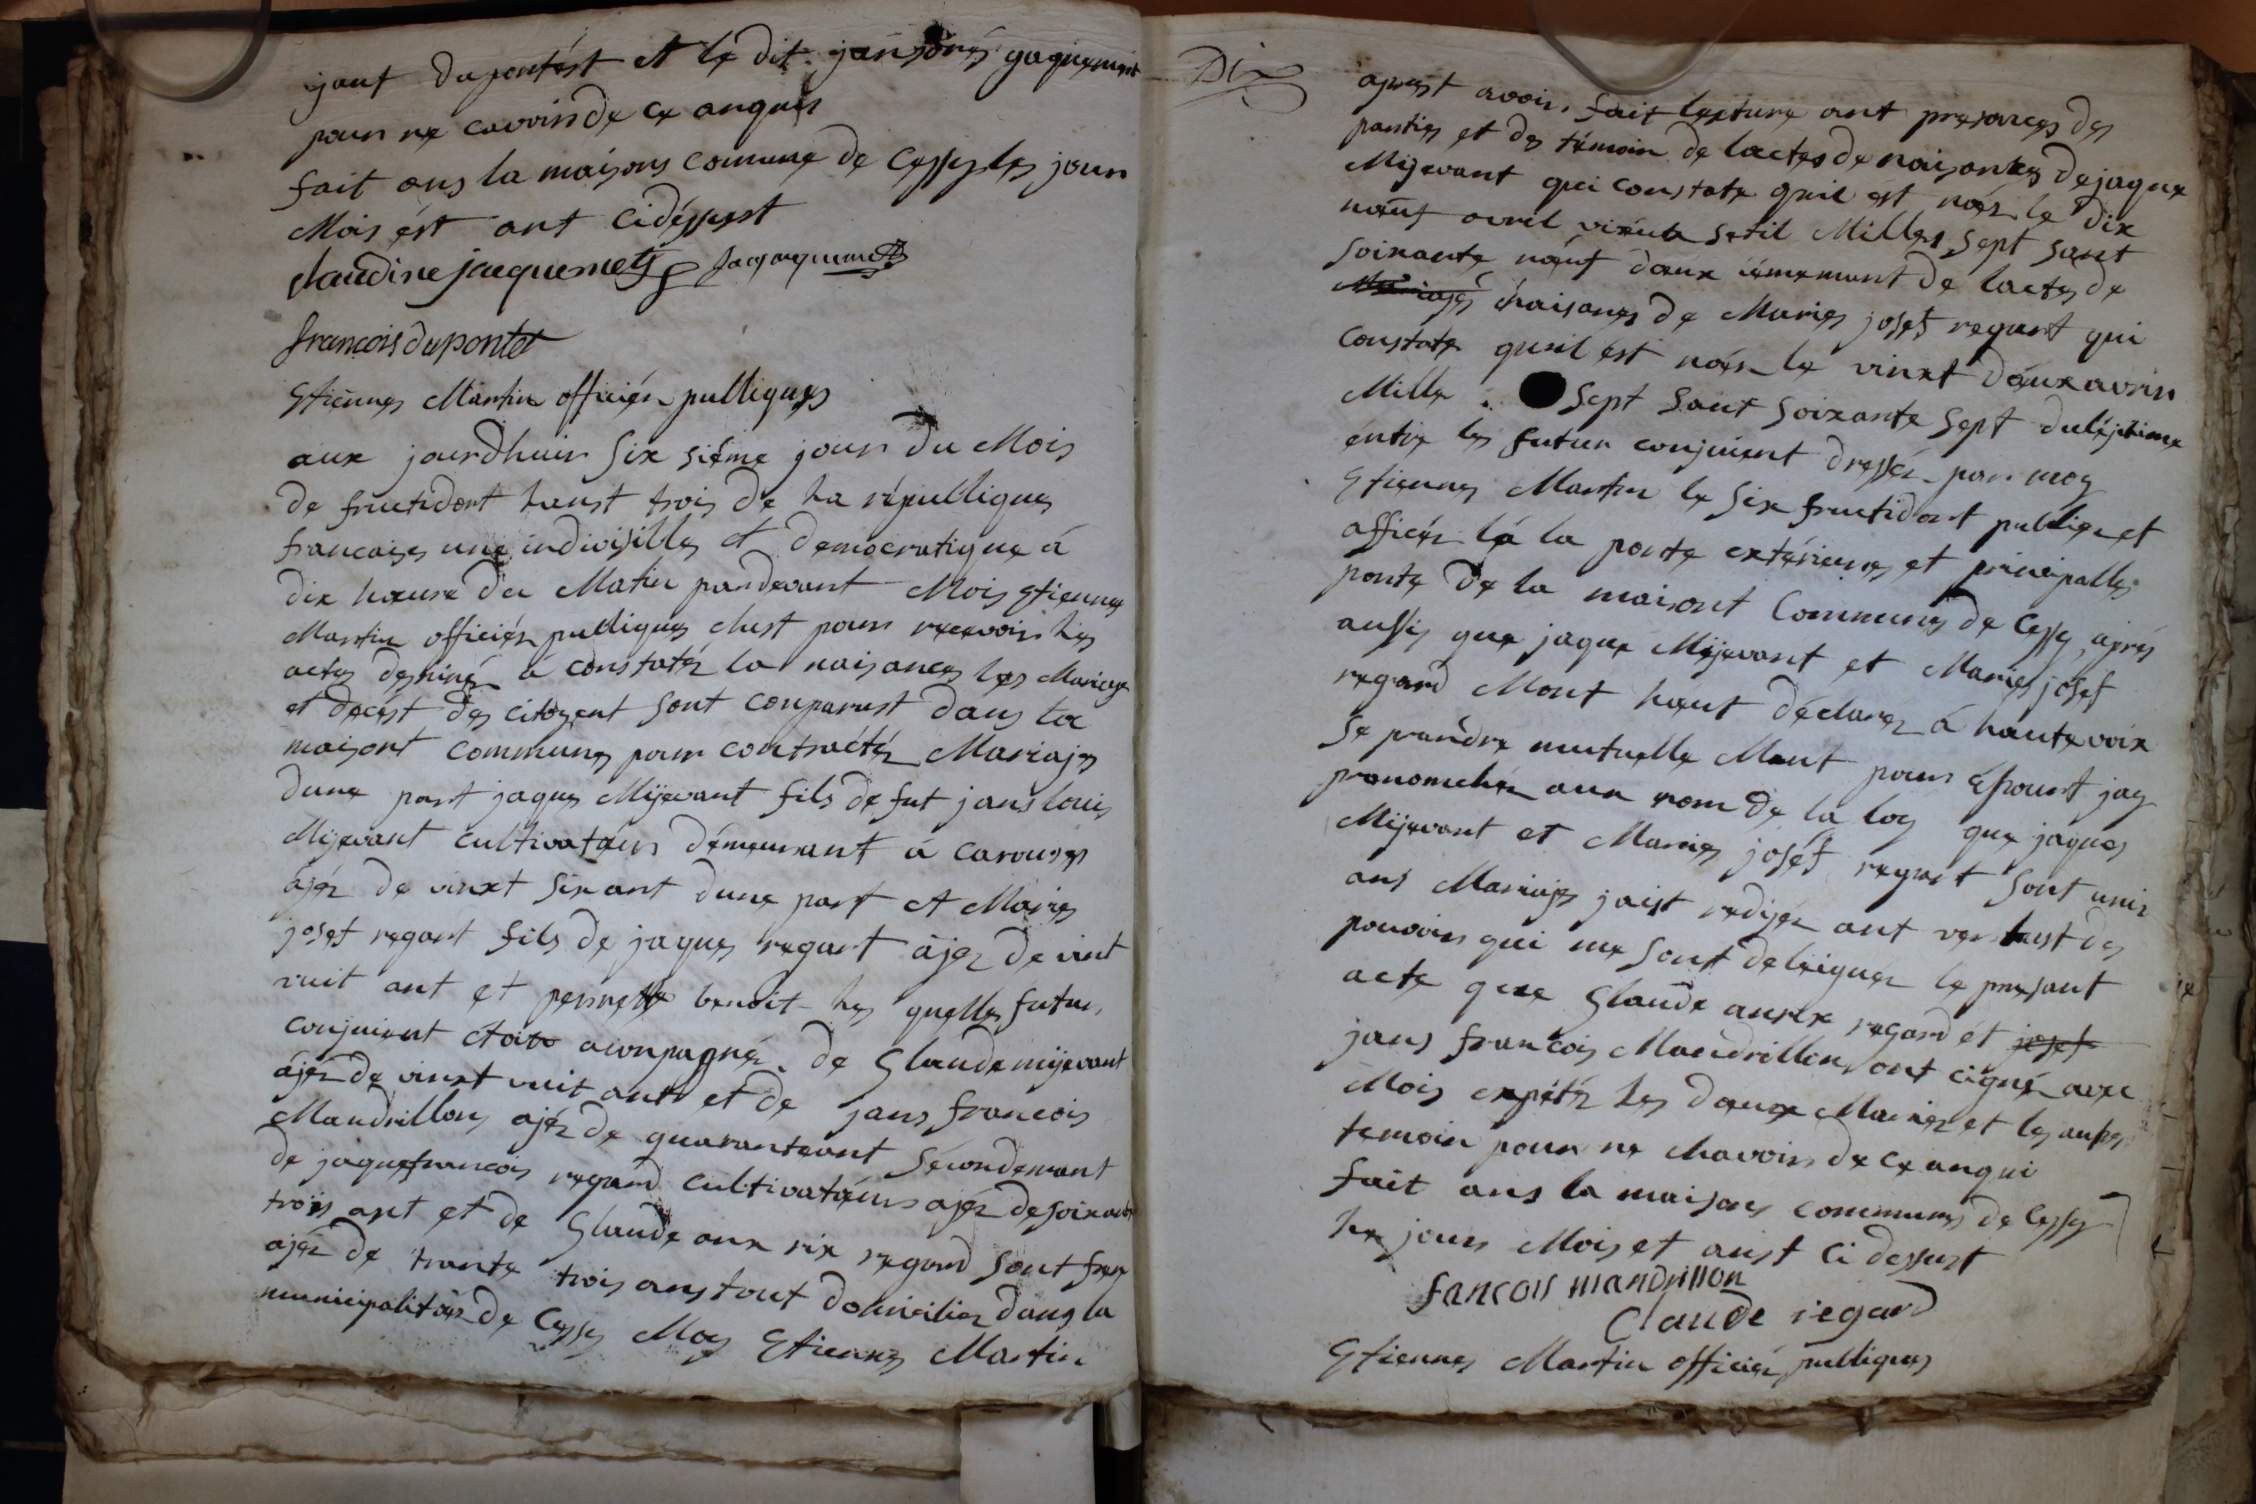 jant dupontest et le dit janzonés gaquemint
pour ne cavoir de ce anquis
fait ans la maisons comune de Cessy les jour
Mois ést ant cidéssust
claudine jaquemet
francois duponter
Etiènnes Martin officién pulliques
aux jourdhuir six siéme jour du Mois
de fructidort lanst trois de la répulliques
francaises une indivisilles et democratique á
dix heure du Matin pardevant Mois Etienne
Martin officién pulliques elust pour recevoir les
actes destinés á constatér la naisances les Mariage
et decest des citoyent sont conparust dans la
maisont communes pour contractér Mariajes
dune part jaques Mijevant fils de fut jans louis
Mijevant cultivatéurs démeurant á carouses
ájér de vinxt six ant dune part et Maries
josef regart fils de jaques regart ájer de vint
vuit ant et pernette benoit les quelles futur
conjuient étoit aconpagnér de Glaude mijevant
ájér de vinxt vuit ant et de jans francois
Mandrillons ajér de quaranteant sécondemant
de jaquefrancois regard cultivatéurs ajér de soixante
trois ant et de Glaude aux rix regard sont frere
ajér de trante trois ans tout domicilier dans la
municipalitér de Cessy Moy Etiennes Martin
Dix
aprest avoir fait lecture ant presances des
parties et des témoin de lactes de naisances de jaque
Mijevant qui constate quil est nér le dix
neuf avril vieux stil Milles sept sant
soixante neuf deux iémemant de lactes de
Mariajes naisances de Maries josef regart qui
constate quil ést nér le vinxt deux avrir
Mille sept sant soixante sept
éntre les futur conjuient dressér par moy
Etiennes Martin le six fructidort publier et
afficér lá la porte extérieures et principalles
porte de la maisont communes de Cessy, aprés
aussis que jaque Mijevant et Maries josef
regard Mont haut déclarer á haute voix
se prandre mutuelle Mant pour épourt jay
prononcher aux nom de la loy que jaques
Mijevant et Maries josef regart sont unir
ans Mariajes jaist redijér ant vertust des
pouvoir qui me sont deleiguér le presant
acte que Glaude aurix regard et josef
jans francois Mandrillon ont cignér avec
Mois expétér les deux Mariér et les autres
temoin pour ne chavoir de ce anqui
fait ans la maisons communes de Cessy
les jours Mois et anst ci dessust
fancois mandrillon
Claude regard
Etiennes Martin officiér pulliques